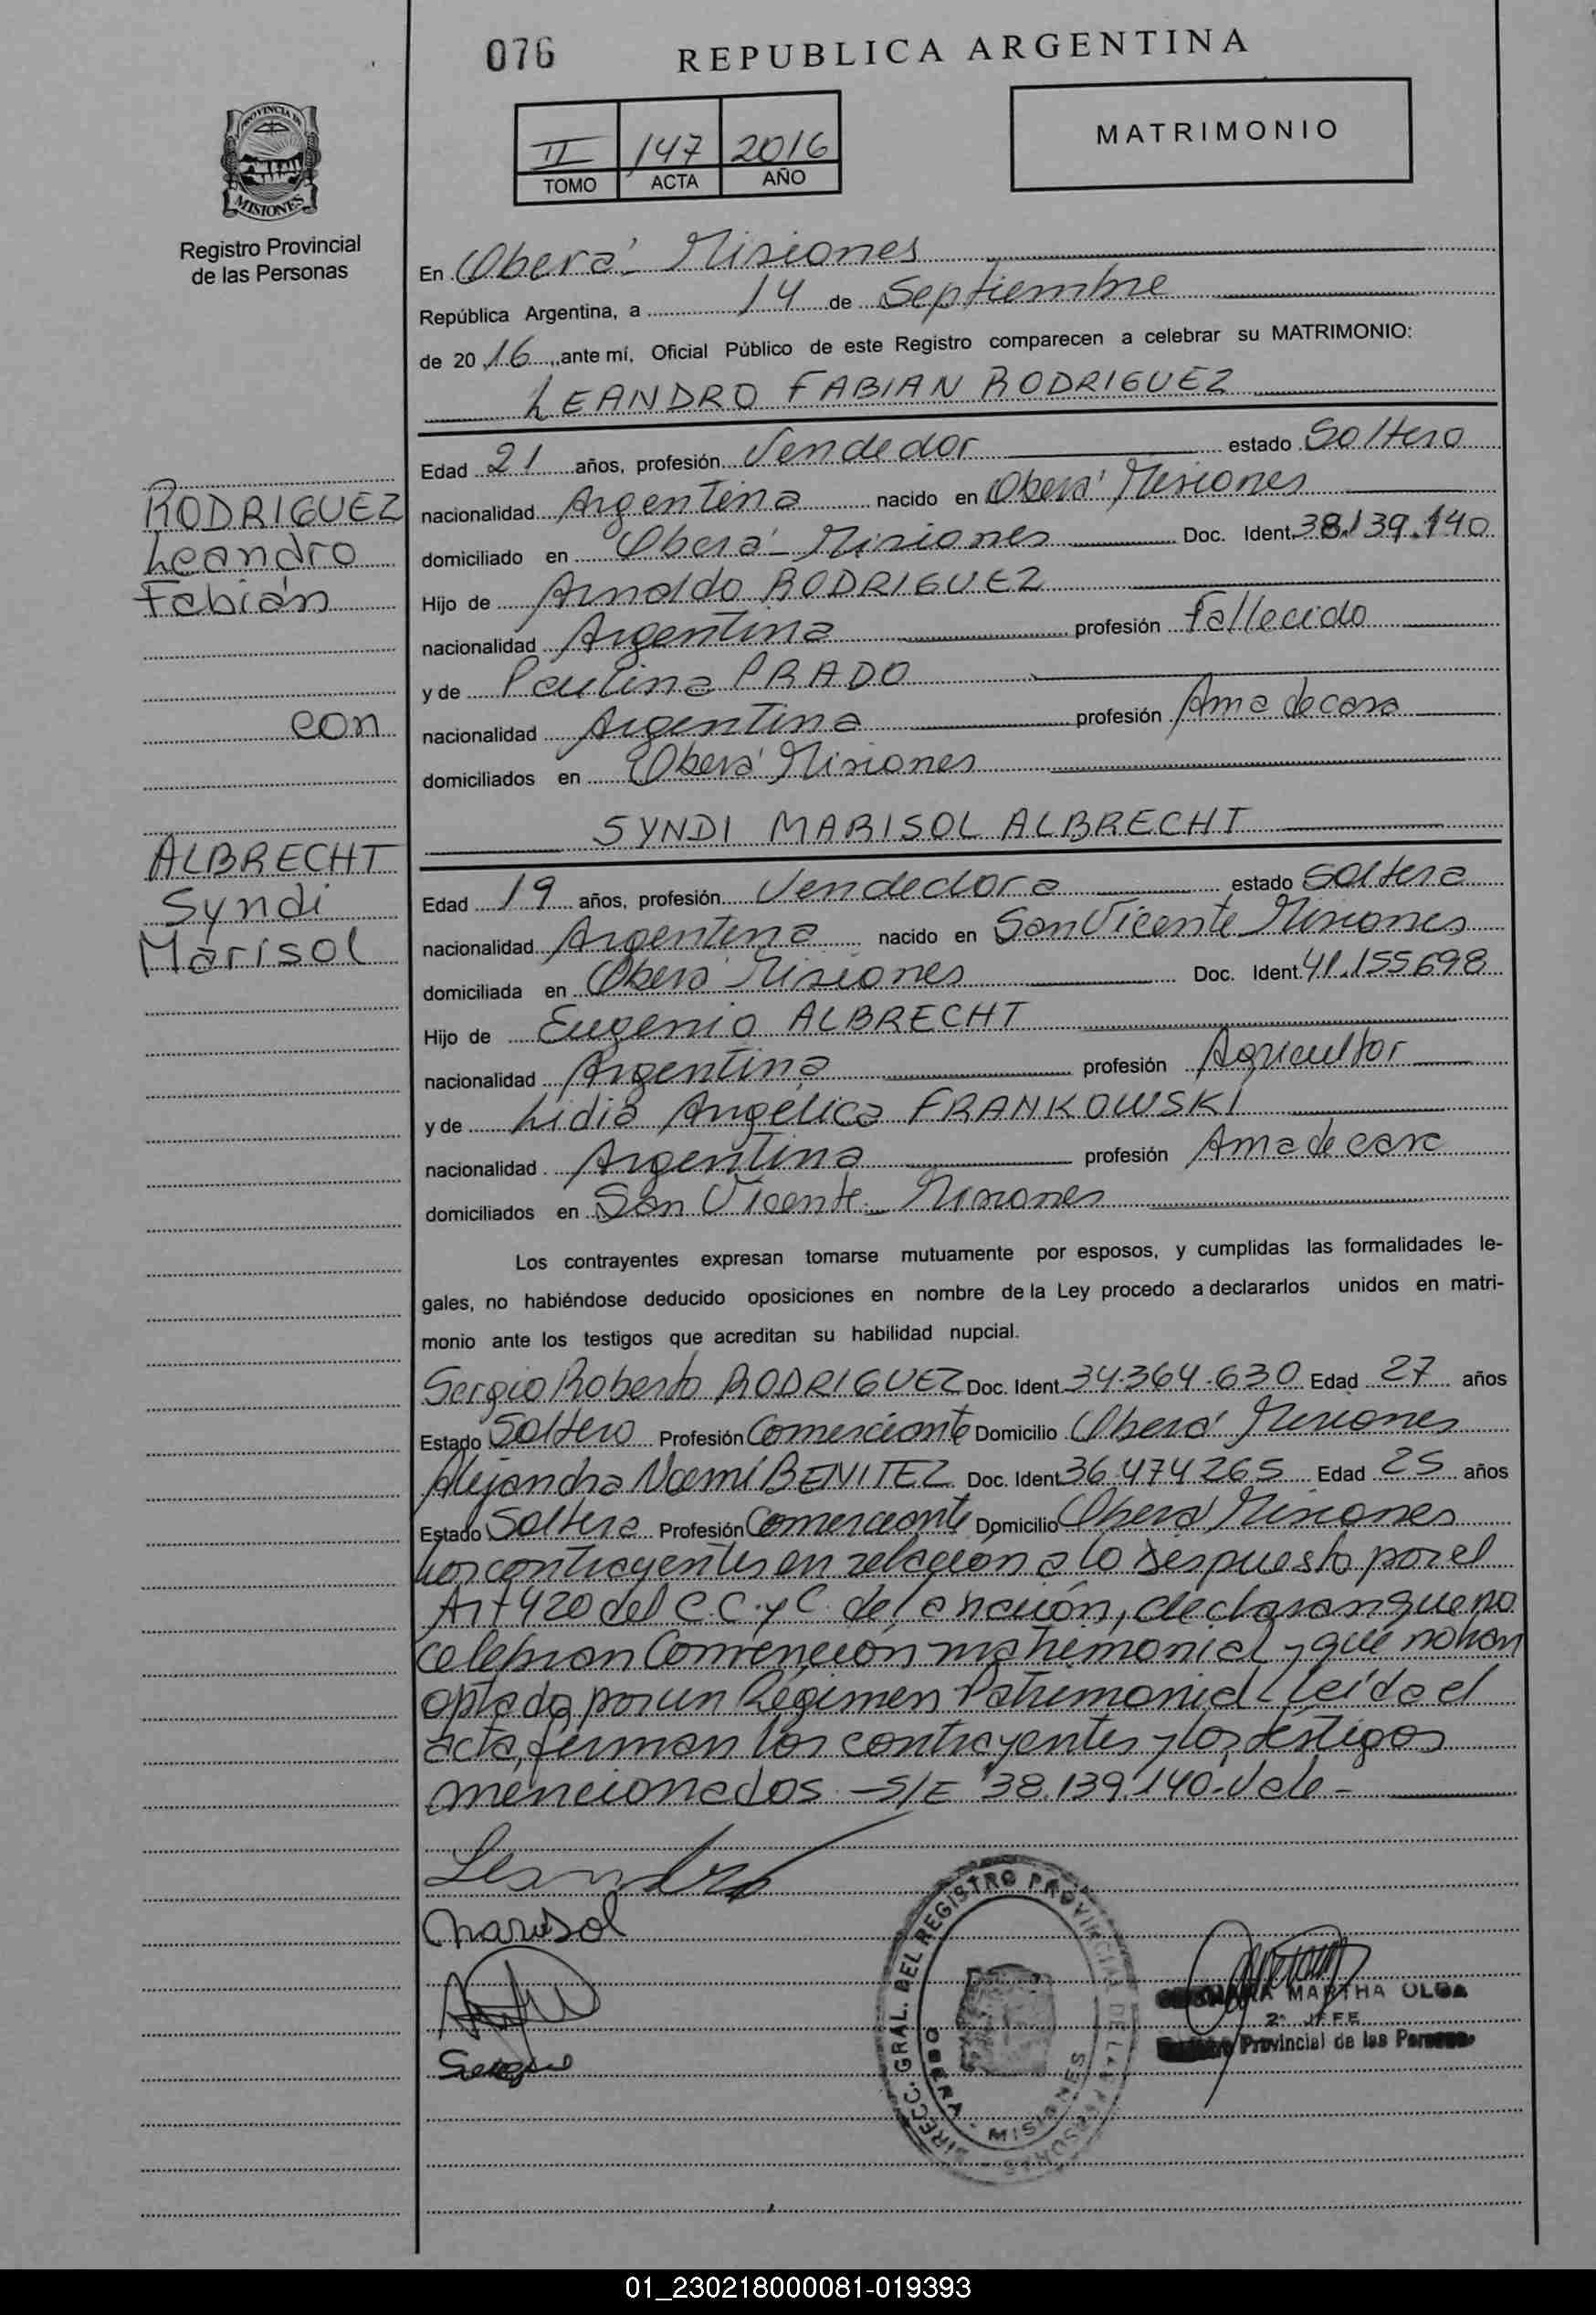 076
REPUBLICA ARGENTINA
II 147 2016
TOMO ACTA AÑO
MATRIMONIO
PROVINCIA DE
MISIONES
Registro Provincial
de las Personas
En Oberá - Misiones
República Argentina, a 14 de Septiembre
de 2016, ante mí, Oficial Público de este Registro comparecen a celebrar su MATRIMONIO:
LEANDRO FABIAN RODRIGUEZ
Edad 21 años, profesión Vendedor estado Soltero
RODRIGUEZ
Leandro
Fabián
con
ALBRECHT
Syndi
Marisol
nacionalidad Argentina nacido en Oberá Misiones
domiciliado en Oberá - Misiones Doc. Ident. 38.139.140
Hijo de Arnaldo RODRIGUEZ
nacionalidad Argentina profesión Fallecido
y de Paulina PRADO
nacionalidad Argentina profesión Ama de casa
domiciliados en Oberá Misiones
SYNDI MARISOL ALBRECHT
Edad 19 años, profesión Vendedora estado Soltera
nacionalidad Argentina nacido en San Vicente Misiones
domiciliada en Oberá Misiones Doc. Ident. 41.155698
Hijo de Eugenio ALBRECHT
nacionalidad Argentina profesión Agricultor
y de Lidia Angélica FRANKOWSKI
nacionalidad Argentina profesión Ama de casa
domiciliados en San Vicente - Misiones
Los contrayentes expresan tomarse mutuamente por esposos, y cumplidas las formalidades le-
gales, no habiéndose deducido oposiciones en nombre de la Ley procedo a declararlos unidos en matri-
monio ante los testigos que acreditan su habilidad nupcial.
Sergio Roberto RODRIGUEZ Doc. Ident. 34.364.630 Edad 27 años
Estado Soltero Profesión Comerciante Domicilio Oberá Misiones
Alejandra Noemí BENITEZ Doc. Ident. 36.474265 Edad 25 años
Estado Soltera Profesión Comerciante Domicilio Oberá Misiones
Los contrayentes en relación a lo dispuesto por el
Art 420 del C.C. y C. de la nación, declaran que no
celebran Convención matrimonial y que no han
optado por un Régimen Patrimonial Leída el
acta, firman los contrayentes y los testigos
mencionados - S/E 38.139.140. Vale -
Leandro
Marisol
Sergio
DIRECC. GRAL. DEL REGISTRO PROVINCIAL DE LAS PERSONAS
OBERA
MISIONES
MARTHA OLGA
2° JEFE
Provincial de las Personas
01_230218000081-019393